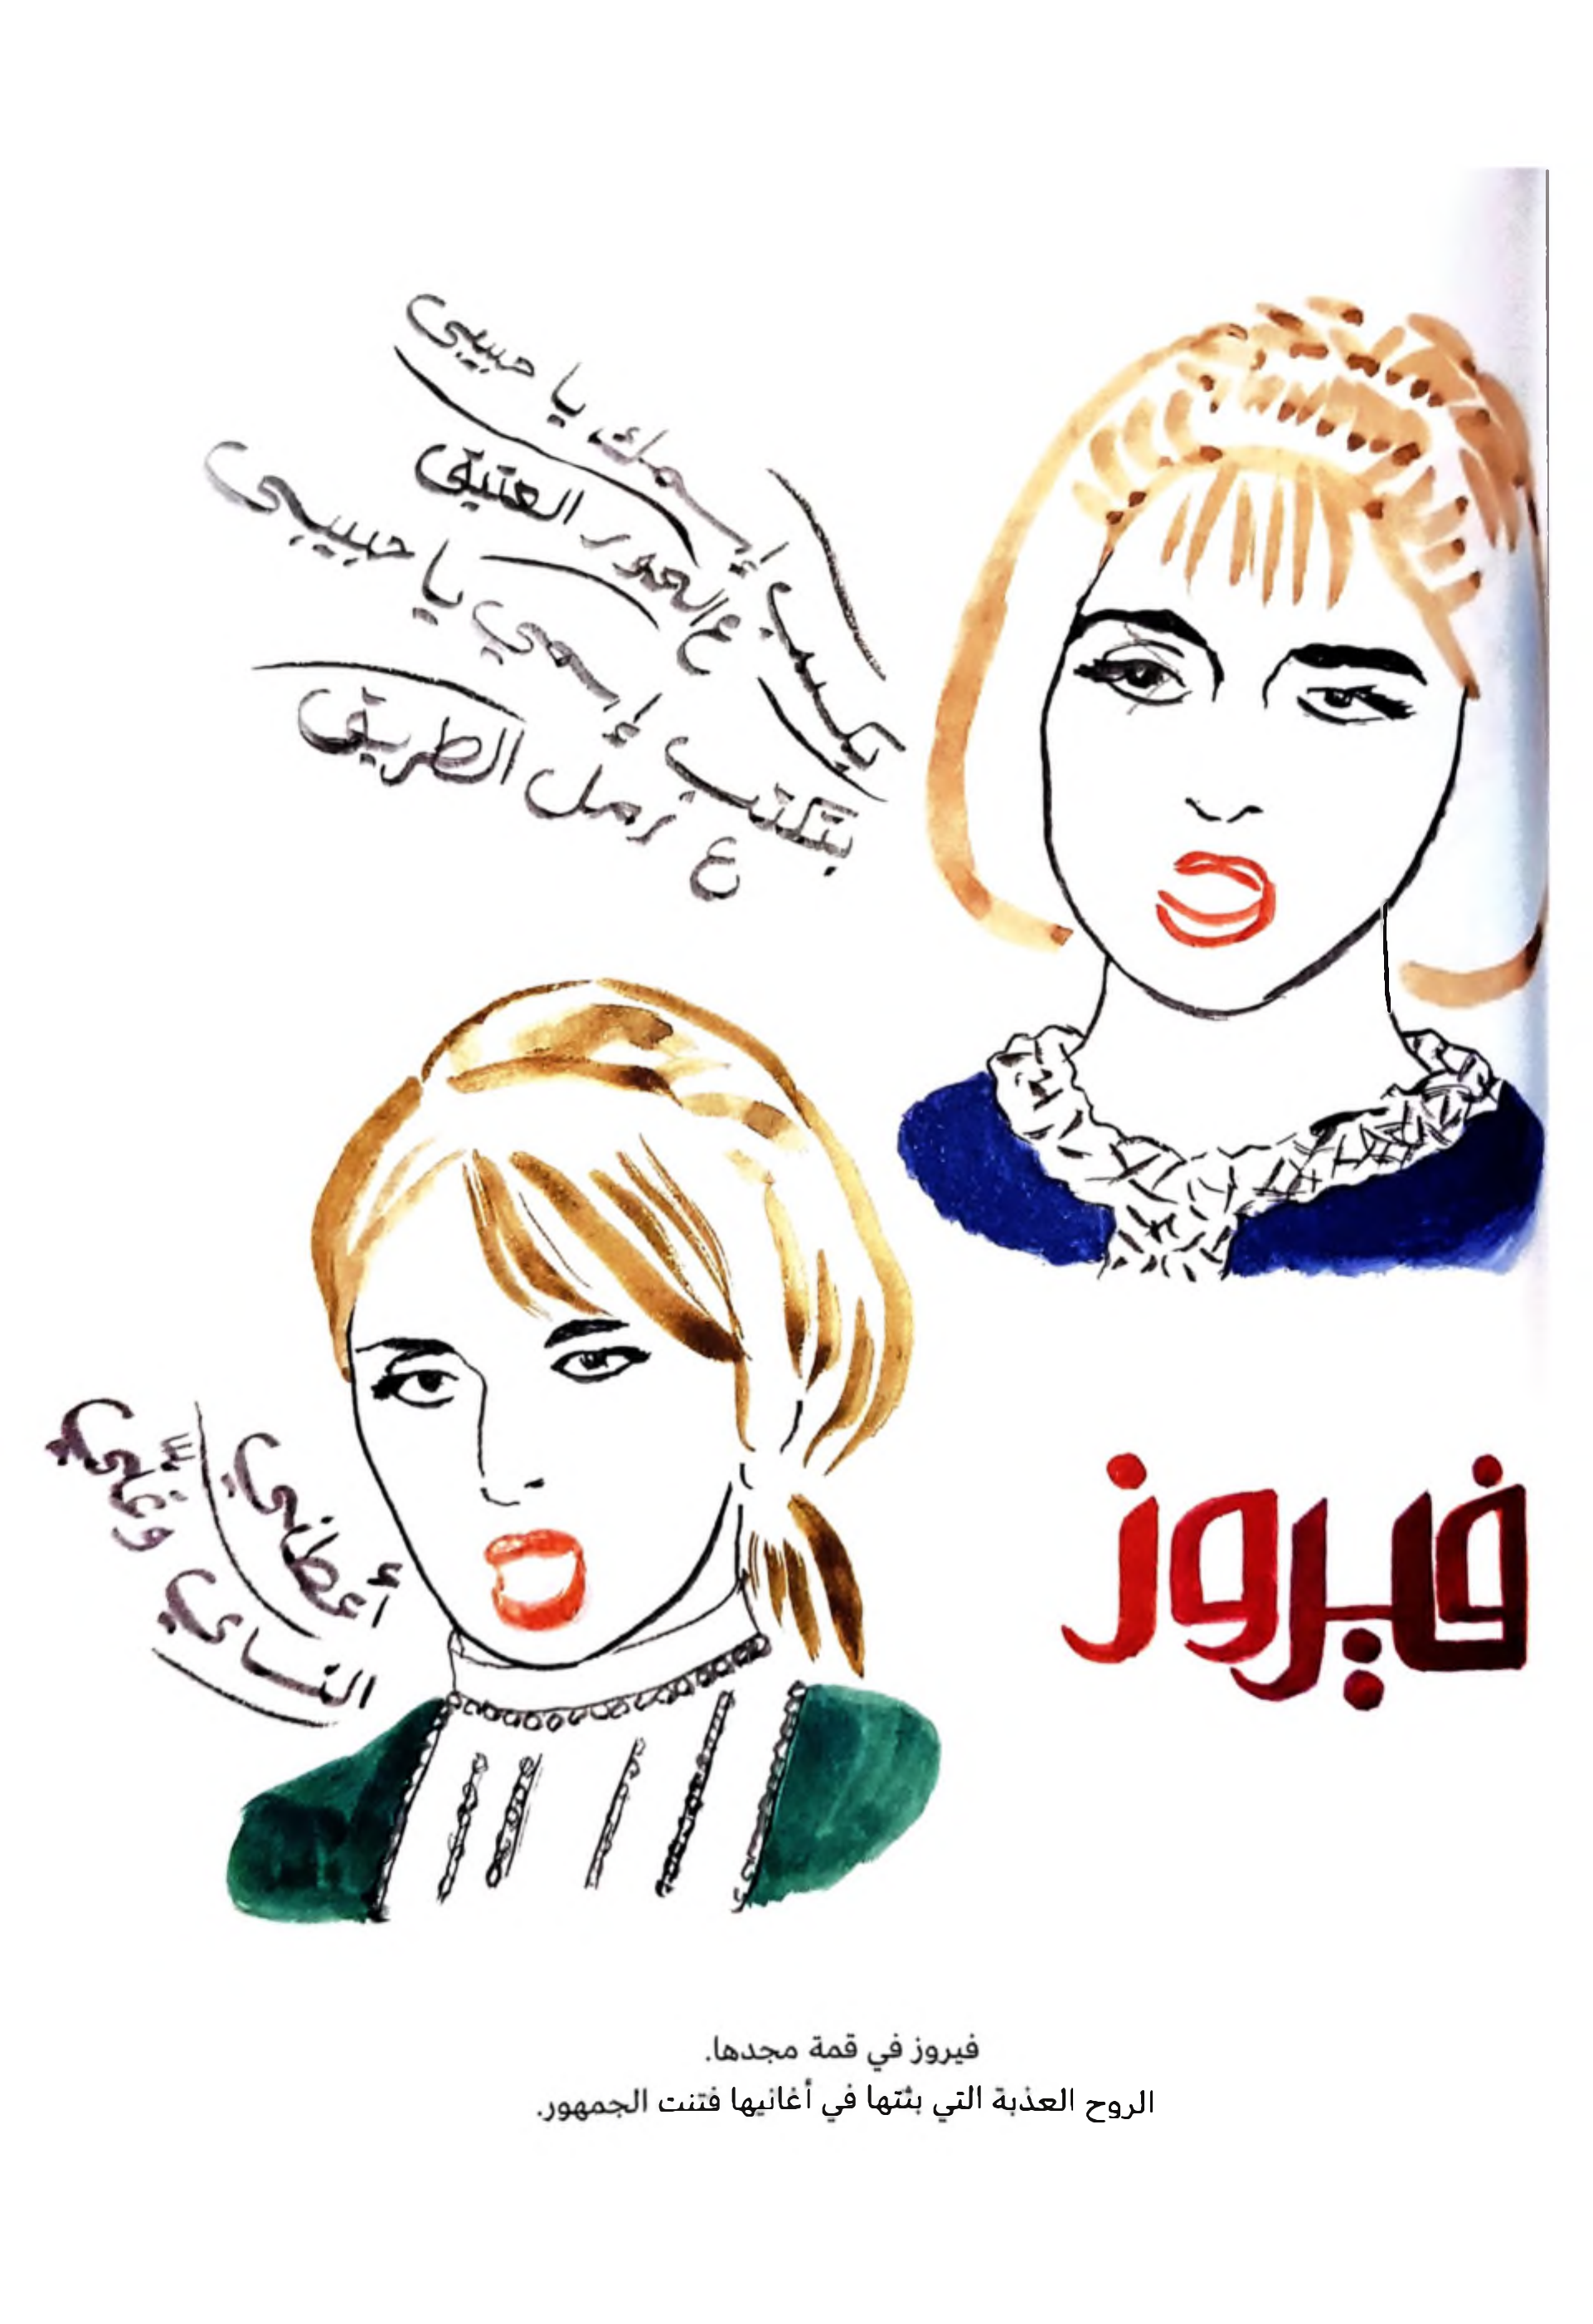 بكتب إسمك يا حبيبي
ع العور العتيق
بتكتب إسمي يا حبيبي
ع رمل الطريق
أعطني
الناي وغنّي
فيروز
فيروز في قمة مجدها.
الروح العذبة التي بثتها في أغانيها فتنت الجمهور.